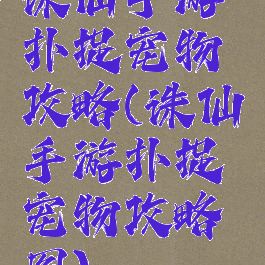 诛仙手游
扑捉宠物
攻略(诛仙
手游扑捉
宠物攻略
图)